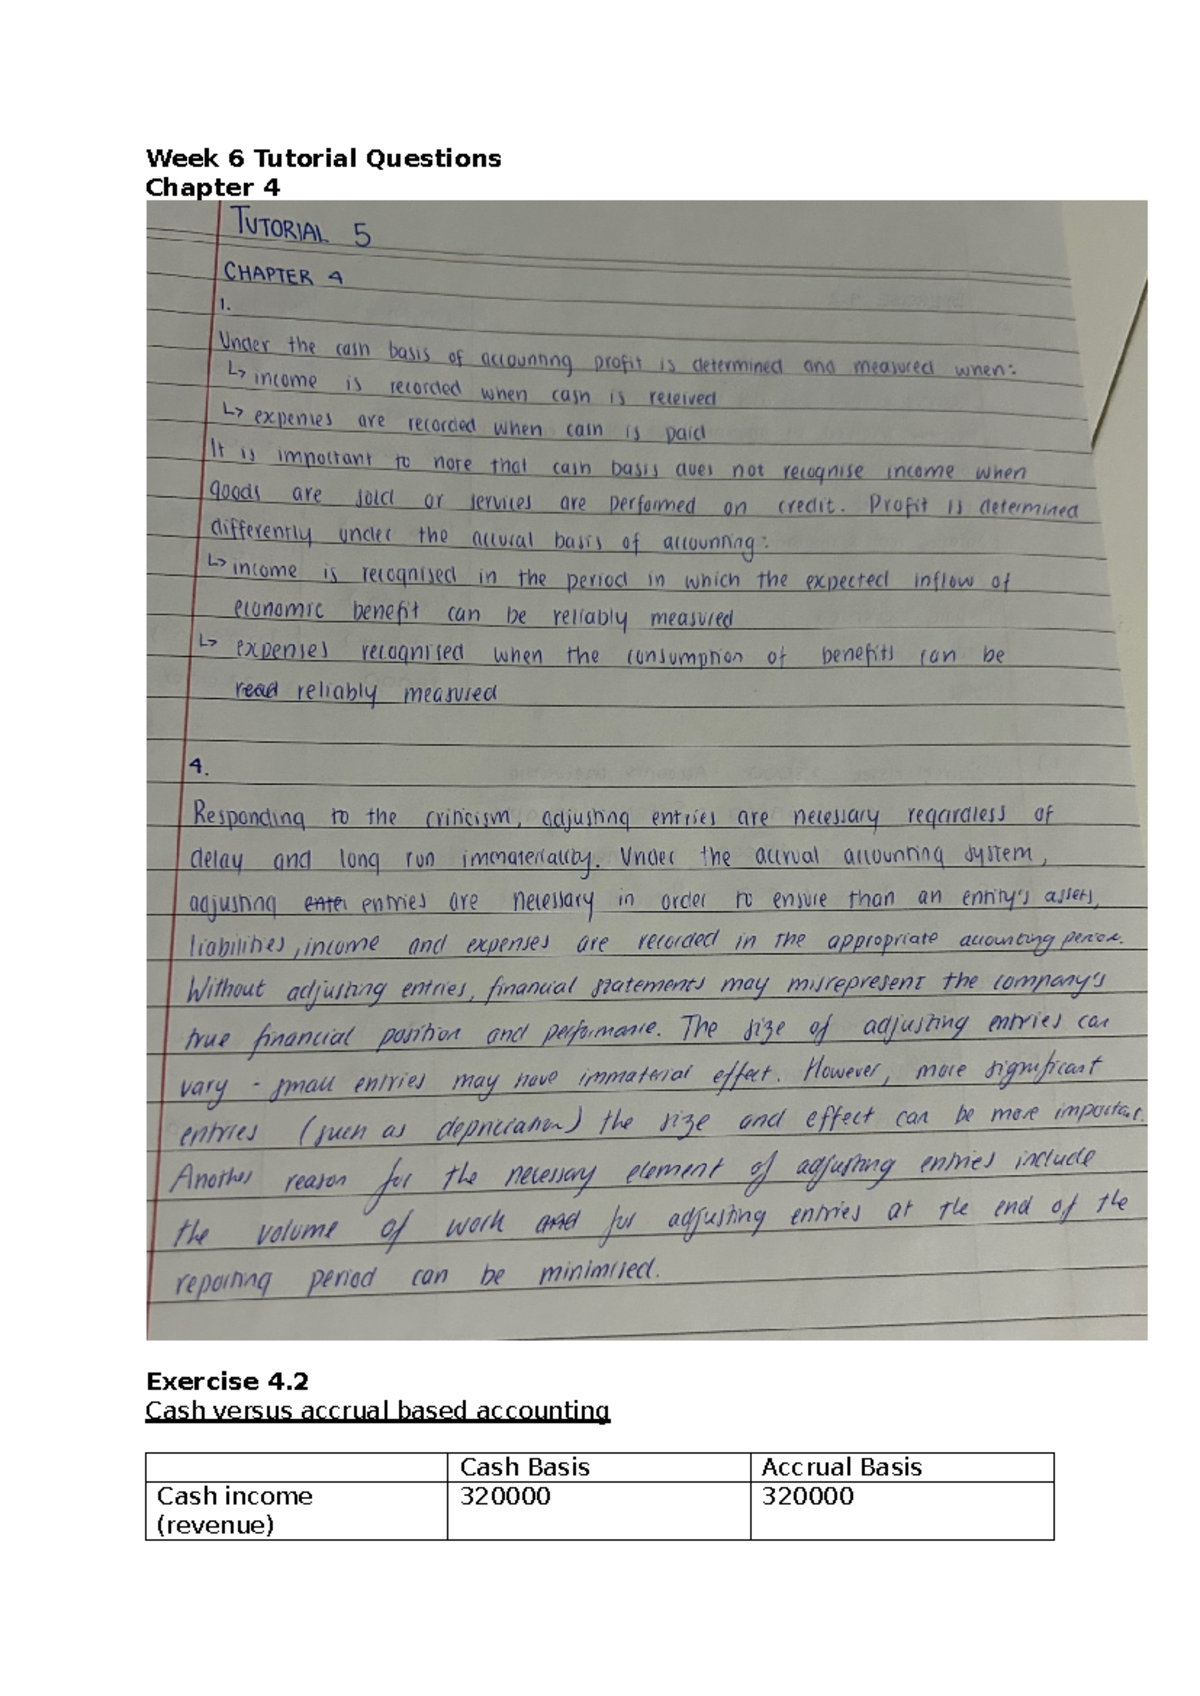 Week 6 Tutorial Questions
Chapter 4
TUTORIAL 5
CHAPTER 4
1.
Under the cash basis of accounting profit is determined and measured when:
↳ income is recorded when cash is received
↳ expenses are recorded when cash is paid
It is important to note that cash basis does not recognise income when
goods are sold or services are performed on credit. Profit is determined
differently under the accural basis of accounting:
↳ income is recognised in the period in which the expected inflow of
economic benefit can be reliably measured
↳ expenses recognised when the consumption of benefits can be
read reliably measured
4.
Responding to the criticism, adjusting entries are necessary regardless of
delay and long run immateriality. Under the accrual accounting system,
adjusting enter entries are necessary in order to ensure than an entity's assets,
liabilities, income and expenses are recorded in the appropriate accounting period.
Without adjusting entries, financial statements may misrepresent the company's
true financial position and performance. The size of adjusting entries can
vary - small entries may have immaterial effect. However, more significant
entries (such as depriciation) the size and effect can be more important.
Another reason for the necessary element of adjusting entries include
the volume of work and for adjusting entries at the end of the
reporting period can be minimised.
Exercise 4.2
Cash versus accrual based accounting
Cash Basis Accrual Basis
Cash income 320000 320000
(revenue)